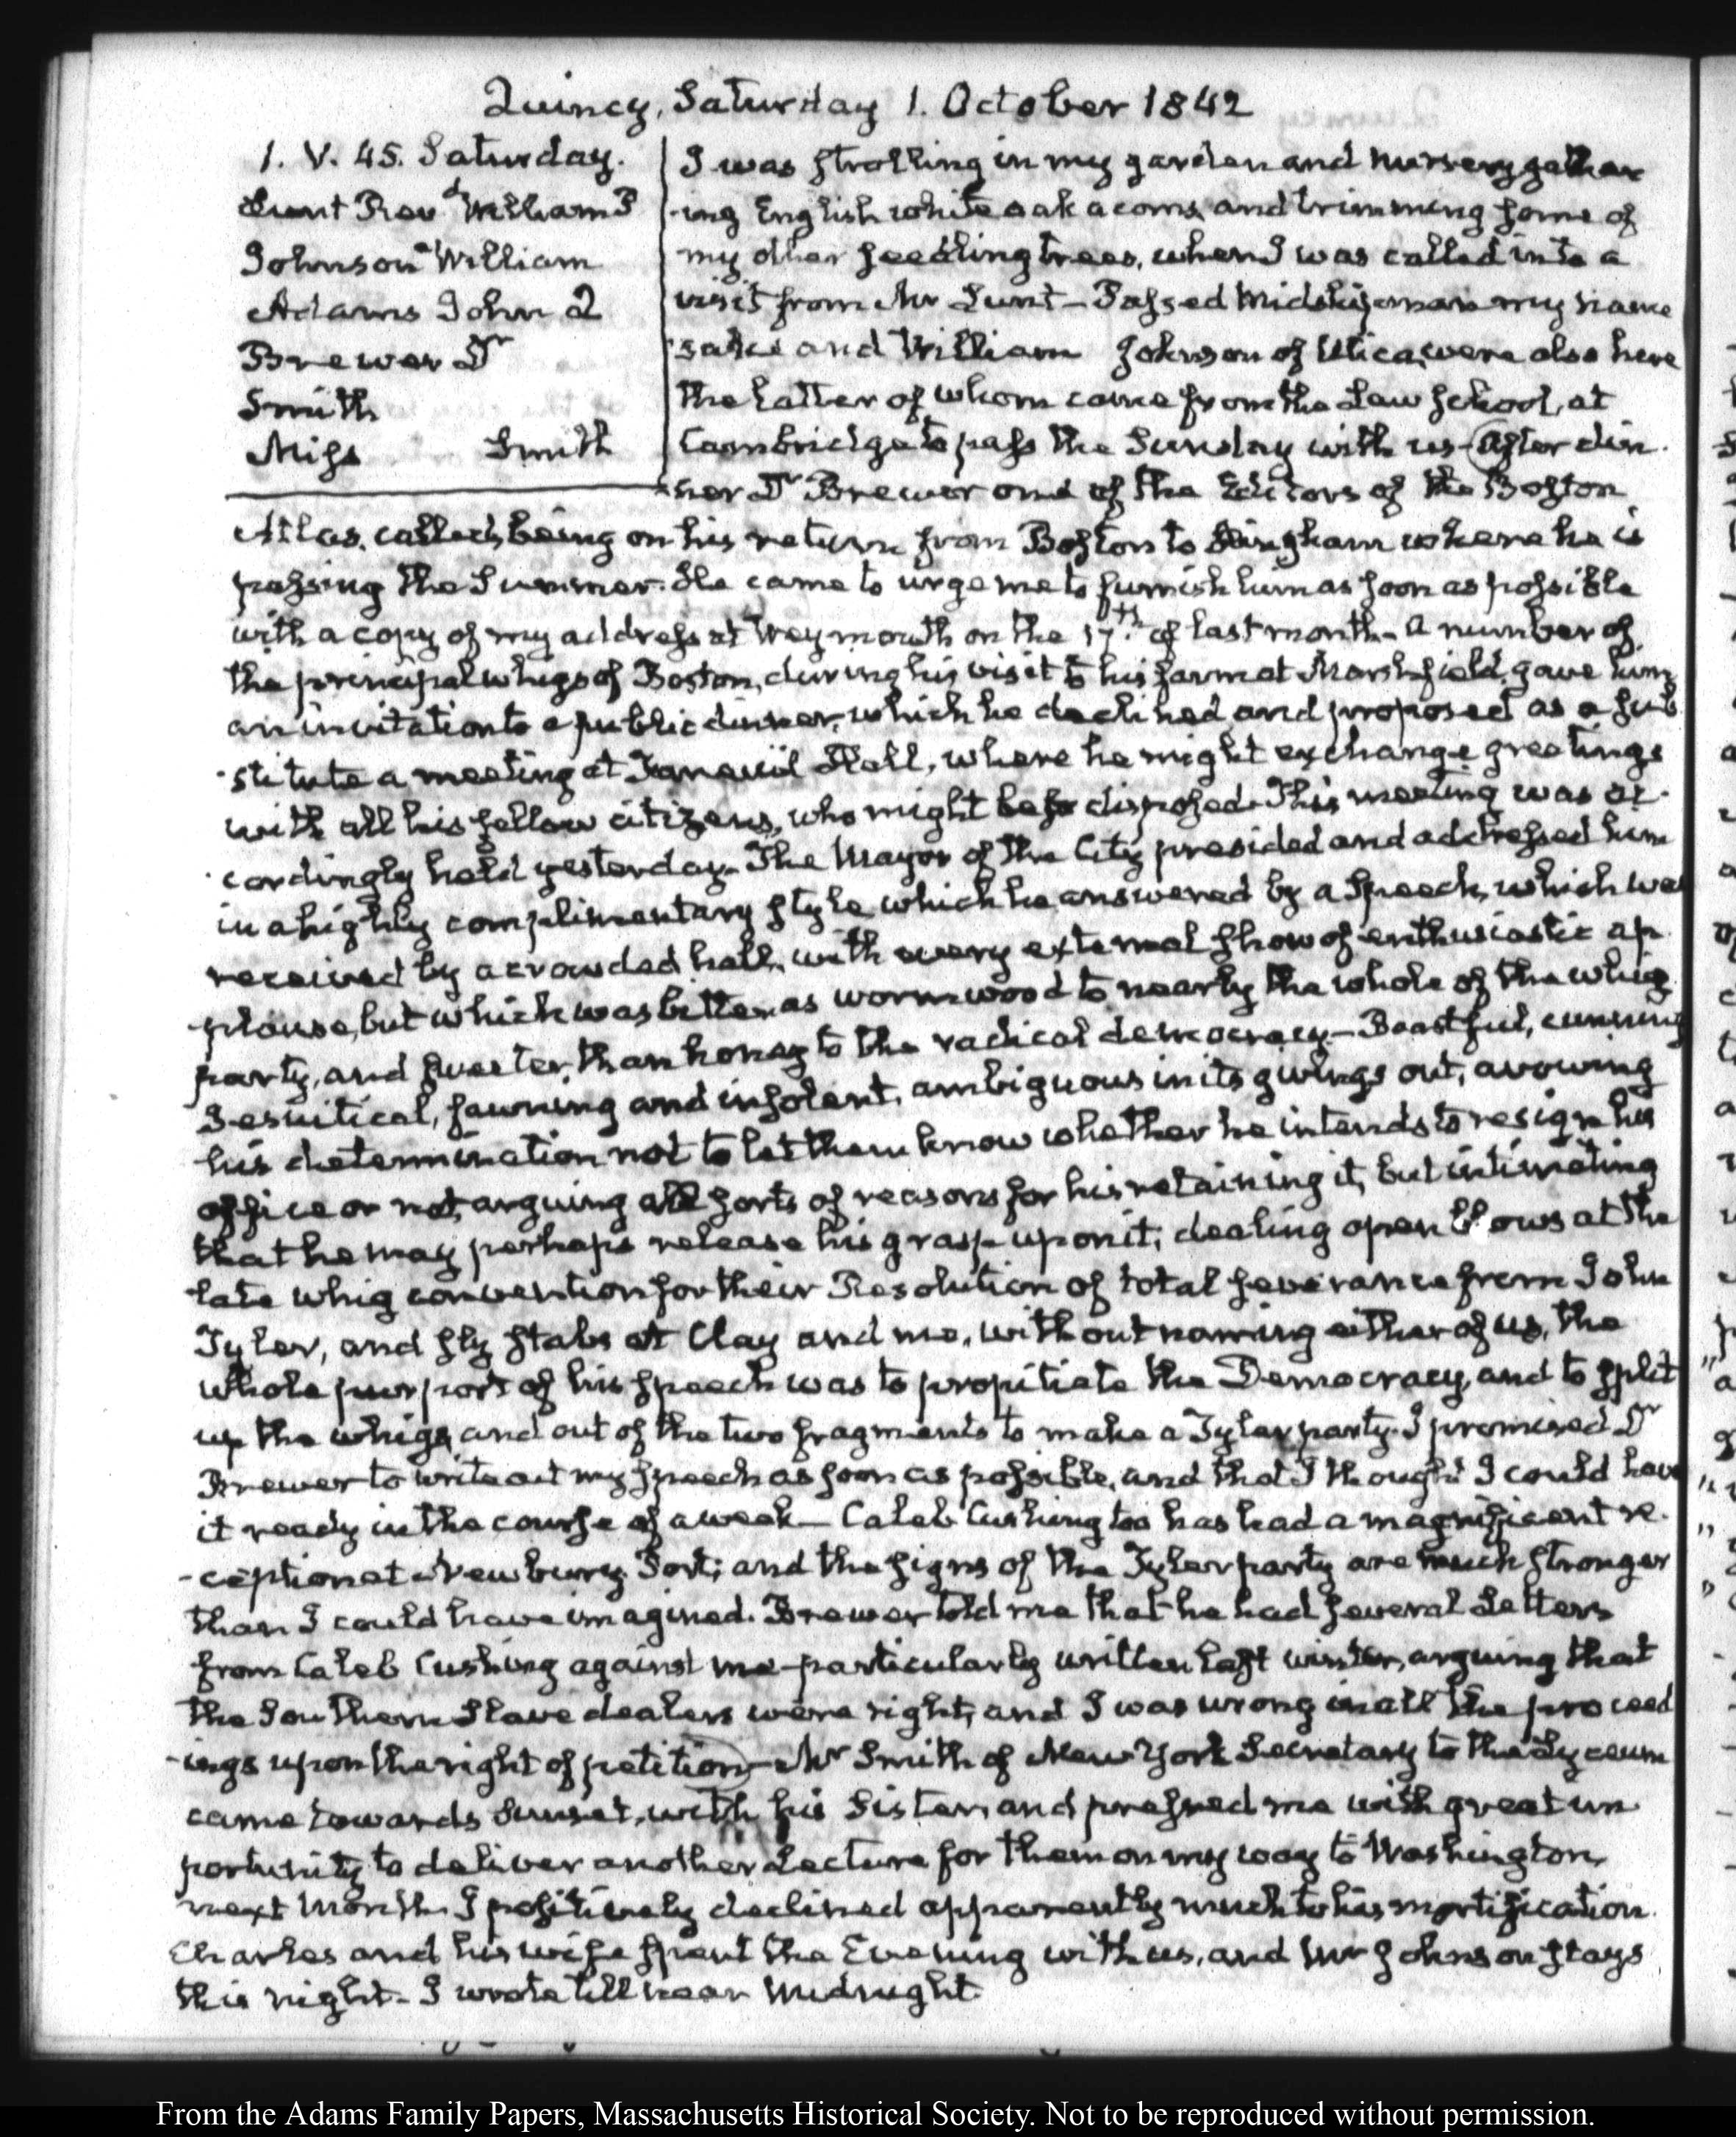 Quincy, Saturday 1. October 1842
1. V. 45. Saturday.
Lunt Revd William P
Johnson William
Adams John Q
Brewer Dr
Smith
Miss Smith
I was strolling in my garden and nursery gather
-ing English white oak acorns, and trimming some of
my other seedling trees, when I was called in to a
visit from Mr Lunt — Passed Midshipman my name
sake and William Johnson of Utica, were also here
the latter of whom came from the Law school, at
Cambridge to pass the Sunday with us — After din
-ner Dr Brewer one of the Editors of the Boston
Atlas, called, being on his return from Boston to Hingham where he is
passing the Summer. He came to urge me to furnish him as soon as possible
with a copy of my address at Weymouth on the 17th. of last month — A number of
the principal whigs of Boston, during his visit to his farm at Marshfield, gave him
an invitation to a public dinner, which he declined and proposed as a sub
-stitute a meeting at Faneuil Hall, where he might exchange greetings
with all his fellow citizens, who might be so disposed. This meeting was ac-
-cordingly held yesterday. The Mayor of the City presided and addressed him
in a highly complimentary style which he answered by a Speech, which was
received by a crowded hall, with every external show of enthusiastic ap
-plause, but which was bitter as wormwood to nearly the whole of the whig
party, and sweeter than honey to the radical democracy — Boastful, cunning
Jesuitical, fawning and insolent, ambiguous in its givings out, avowing
his determination not to let them know whether he intends to resign his
office or not, arguing all sorts of reasons for his retaining it, but intimating
that he may perhaps release his grasp upon it; dealing open blows at the
late whig convention for their Resolution of total severance from John
Tyler, and sly stabs at Clay and me, without naming either of us, the
whole purport of his speech was to propitiate the Democracy, and to split
up the whigs, and out of the two fragments to make a Tyler party. I promised Dr
Brewer to write out my speech as soon as possible, and that I thought I could have
it ready in the course of a week — Caleb Cushing too has had a magnificent re-
-ception at Newbury Port; and the signs of the Tyler party are much stronger
than I could have imagined. Brewer told me that he had several Letters
from Caleb Cushing against me particularly written last winter, arguing that
the Southern Slave dealers were right, and I was wrong in all the proceed
-ings upon the right of petition — Mr Smith of New York Secretary to the Lyceum
came towards Sunset, with his Sister, and pressed me with great im
portunity to deliver another Lecture for them on my way to Washington,
next Month. I positively declined apparently much to his mortification.
Charles and his wife spent the Evening with us, and Mr Johnson stays
this night — I wrote till near Midnight.
From the Adams Family Papers, Massachusetts Historical Society. Not to be reproduced without permission.